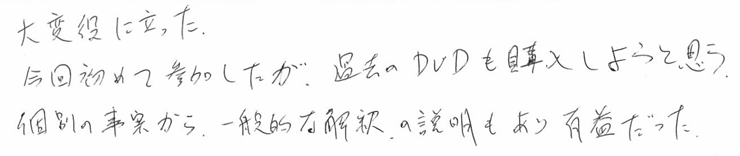 大変役に立った.
今回初めて参加したが、過去のDVDも購入しようと思う.
個別の事案から、一般的な解釈、の説明もあり有益だった.